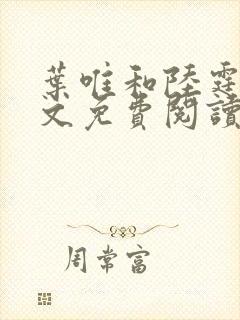 葉唯和陸霆
文免費閱讀
周常富